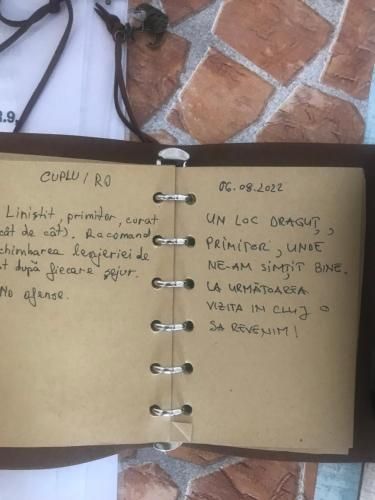 8.9.
CUPLU / RO
Liniștit, primitor, curat
cât de cât). Racomand
chimbarea lenjeriei de
t după fiecare sejur.
No ofense.
06.08.2022
UN LOC DRAGUȚ,
PRIMITOR, UNDE
NE-AM SIMȚIT BINE.
LA URMĂTOAREA
VIZITA IN CLUJ O
SA REVENIM!